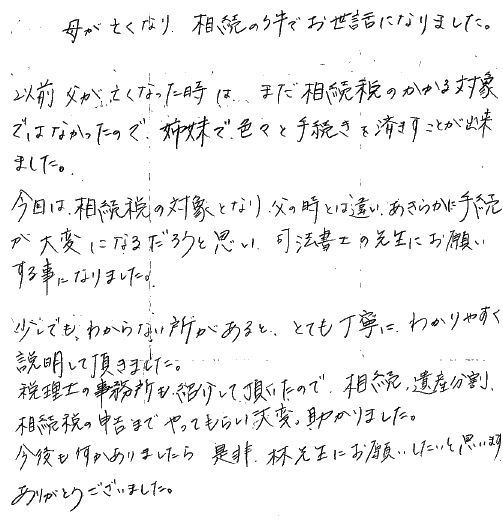 母が亡くなり、相続の件でお世話になりました。
以前父が亡くなった時は、まだ相続税のかかる対象
ではなかったので、姉妹で色々と手続きを済ますことが出来
ました。
今回は、相続税の対象となり、父の時とは違い、あきらかに手続
が大変になるだろうと思い、司法書士の先生にお願い
する事になりました。
少しでも、わからない所があると、とても丁寧に、わかりやすく
説明して頂きました。
税理士の事務所も紹介して頂いたので、相続、遺産分割、
相続税の申告までやってもらい大変、助かりました。
今後も何かありましたら是非、林先生にお願いしたいと思います
ありがとうございました。